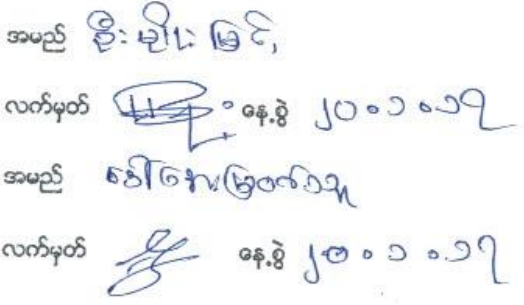 အမည် ဦးမျိုးမြင့်
လက်မှတ် နေ့စွဲ ၂၀.၁.၁၇
အမည် ဒေါ်အေးမြတ်သူ
လက်မှတ် နေ့စွဲ ၂၀.၁.၁၇